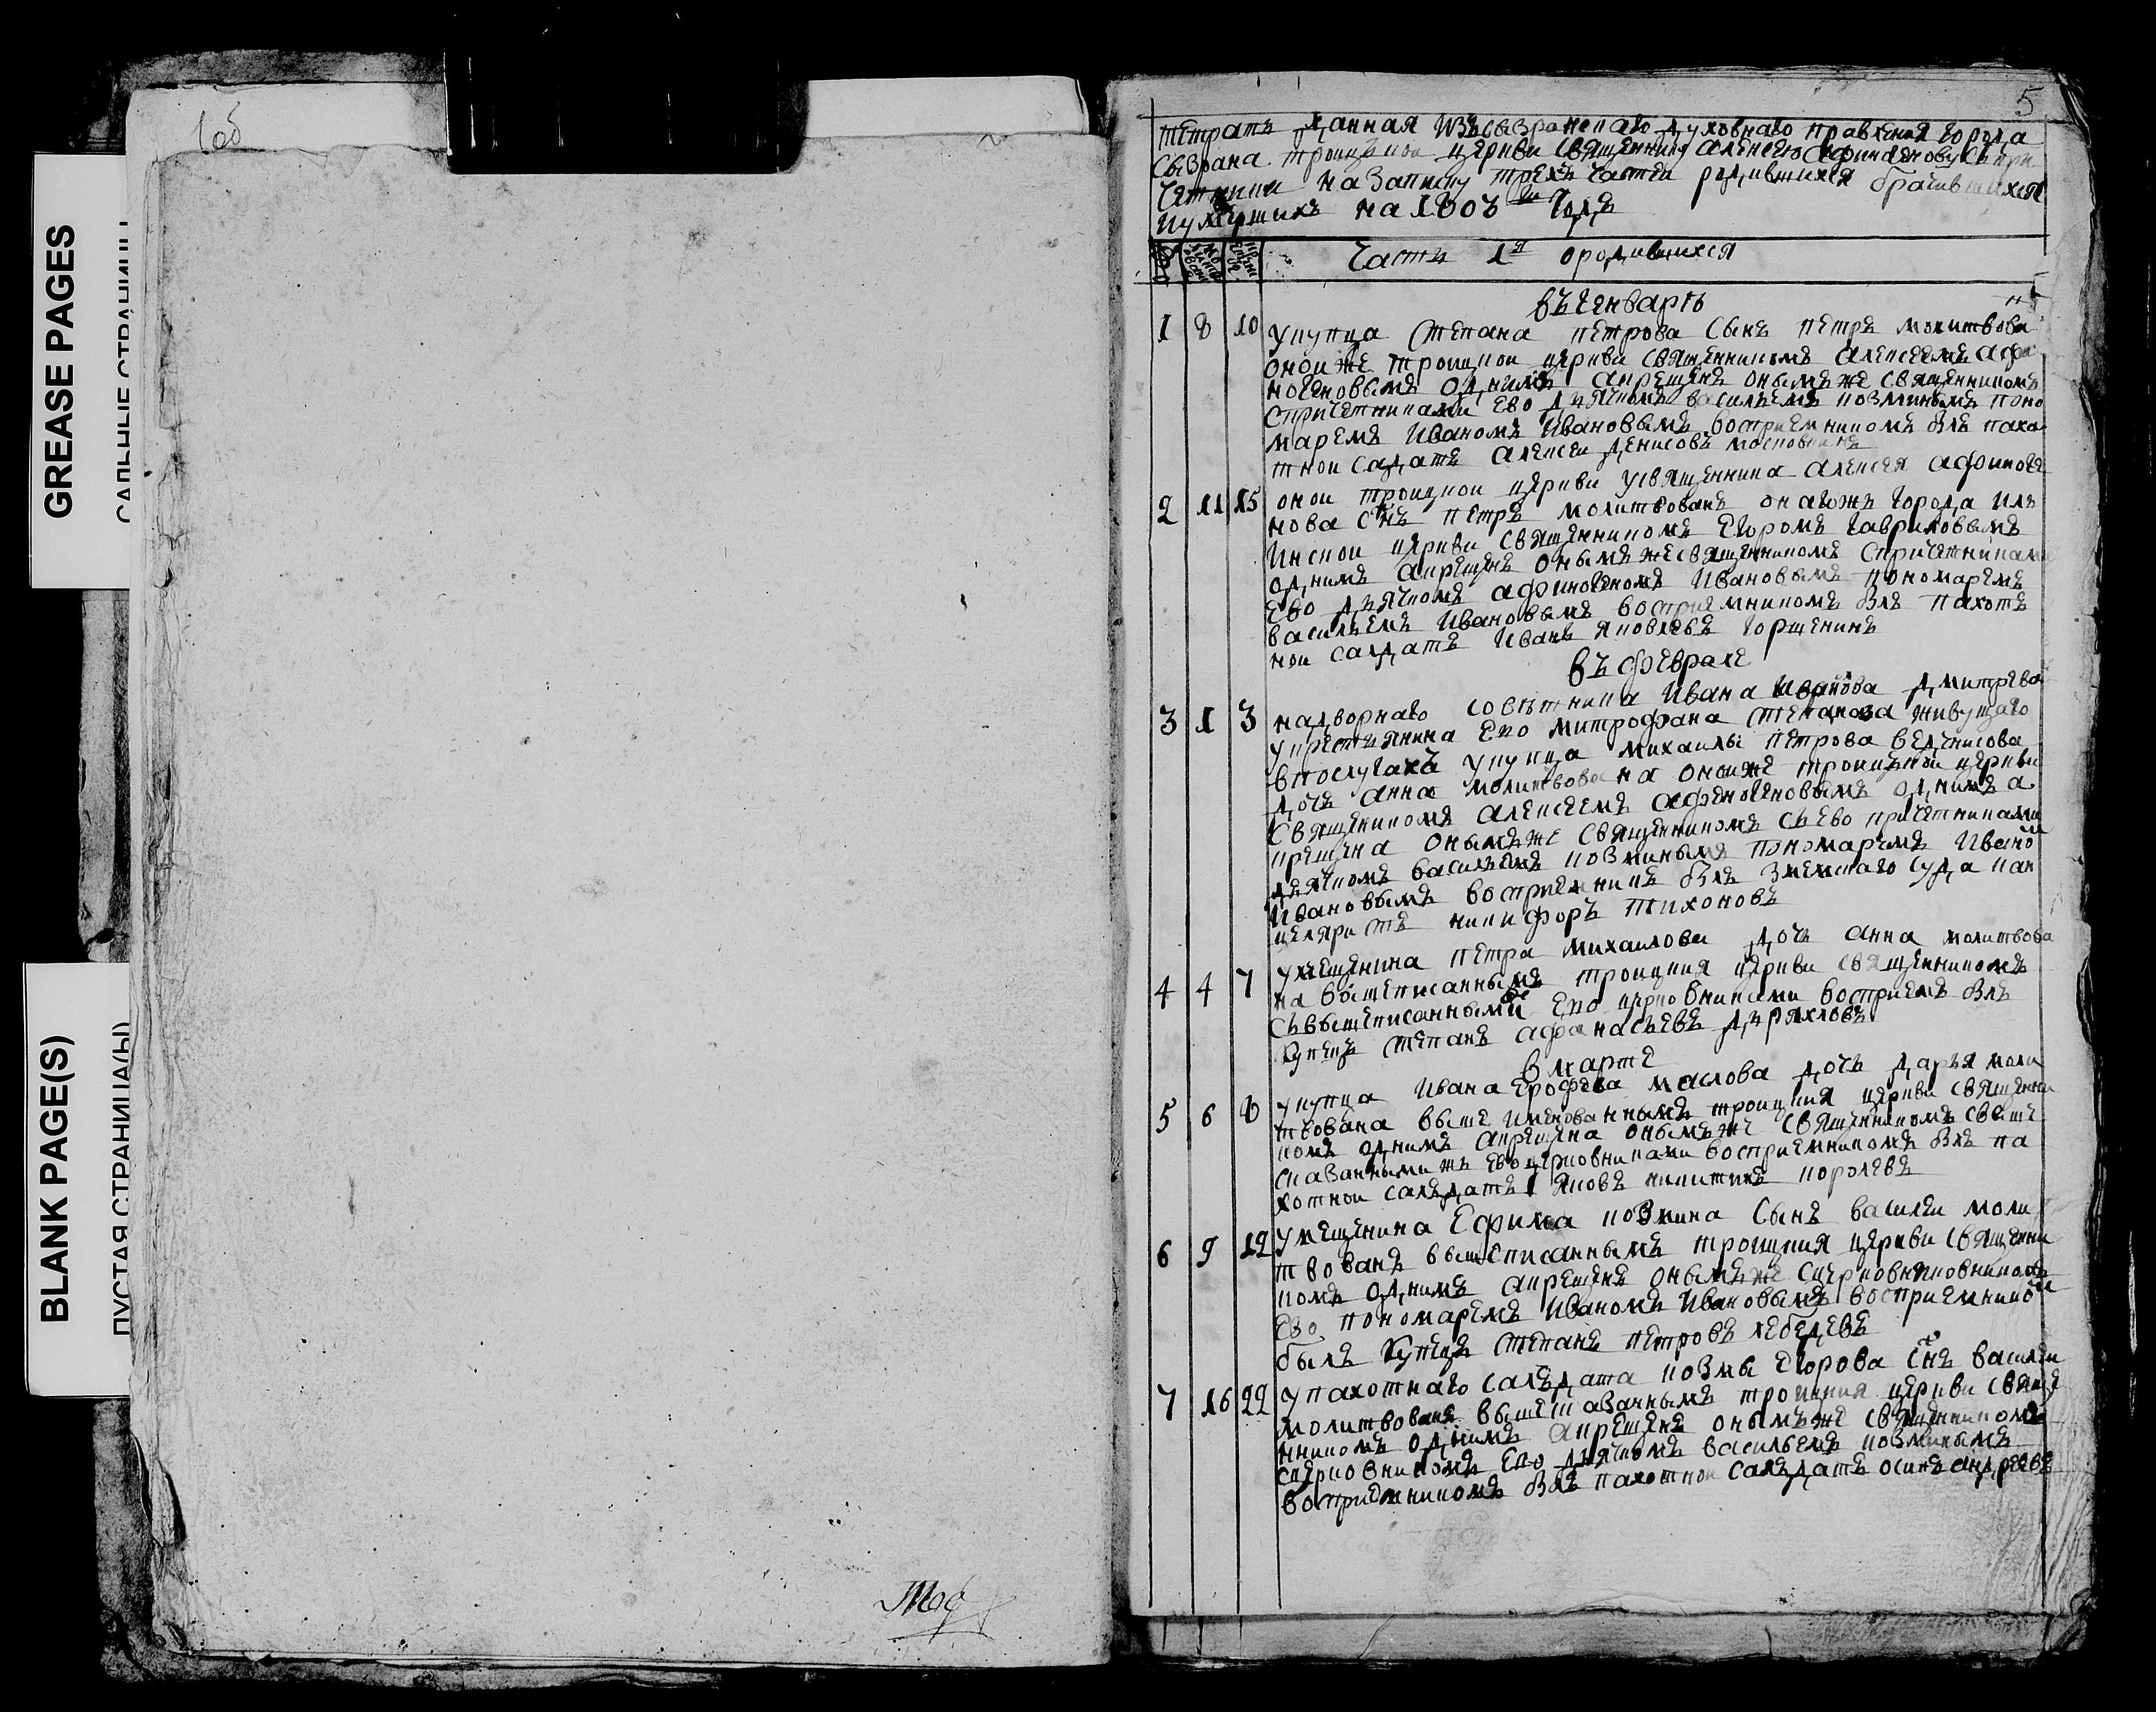 GREASE PAGES
BLANK PAGE(S)
ПУСТАЯ СТРАНИЦА(Ы)
1об
5
тетрать данная изъ сызранскаго духовнаго правления города
сызрана троицкои церкви священнику алексею афиногенову
на записку трехъ частеи родившихся брачившихся
на 1803 годъ
часть 1я ородившихся
въ генваре
1 8 10 укупца степана петрова сынъ петръ молитвова
онои же троицкои церкви священникомъ алексеемъ афи
ногеновымъ однимъ акрещенъ онымъ же священникомъ
спричетниками ево дьячкомъ васильемъ козминымъ поно
маремъ иваномъ ивановымъ восприемникомъ блъ пахо
тнои садатъ алексеи денисовъ
2 11 15 онои троицкои церкви усвященника алексея афиноге
нова снъ петръ молитвованъ онагожъ города иль
инскои церкви священникомъ егоромъ гавриловымъ
однимъ акрещенъ онымъ же священникомъ спричетникам
ево дьячкомъ афиногеномъ ивановымъ пономаремъ
васильемъ ивановымъ восприемникомъ блъ пахот
нои салдатъ иванъ яковлевъ горшенинъ
въ феврале
3 1 3 надворнаго советника ивана дмитрева
укрестьянина ево митрофана степанова живущаго
вкослугахъ укупца михаилы петрова
дочь анна молитвована онои же троицкои церкви
священикомъ алексеемъ афеногеновымъ однимъ а
крещена онымъ же священникомъ съ ево причетниками
дьячкомъ васильемъ козминымъ пономаремъ ивано
ивановымъ восприемникъ блъ земскаго суда кан
целяристъ никифоръ тихоновъ
4 4 7 умещенина петра михаилова дочь анна молитвова
на вышеписаннымъ троицкия церкви священникомъ
съ вышеписанными ево церковниками восприемъ блъ
купецъ степанъ афанасьевъ дьряхловъ
в марте
5 6 8 укупца ивана ерофева маслова дочь дарья моли
твована выше именованнымъ троицкия церкви священни
комъ однимъ акрещена онымъ же священникомъ свыше
сказанными жъ ево церковниками восприемникомъ блъ па
хотнои салъдатъ яковъ никитинъ королевъ
6 9 12 умещенина ефима козмина сынъ василеи моли
твованъ вышеписаннымъ троицкия церкви священни
комъ однимъ акрещенъ онымъ же
ево пономаремъ иваномъ ивановымъ восприемнико
былъ купецъ степанъ петровъ лебедевъ
7 16 22 упахотнаго салъдата козмы егорова снъ василеи
молитвованъ троицкия церкви свяще
нникомъ однимъ акрещенъ онымъ же священникомъ
сцерковникомъ ево дьячкомъ васильемъ козминымъ
восприемникомъ блъ пахотнои салъдатъ осипъ андреевъ